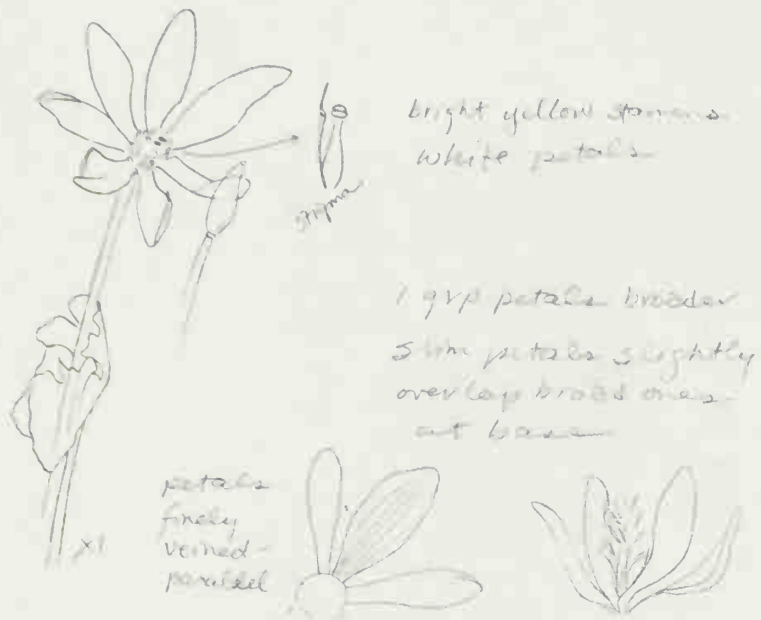 bright yellow stamens
white petals
stigma
1 grp petals broader
slim petals slightly
overlap broad ones
at base
petals
finely
veined-
parallel
x1